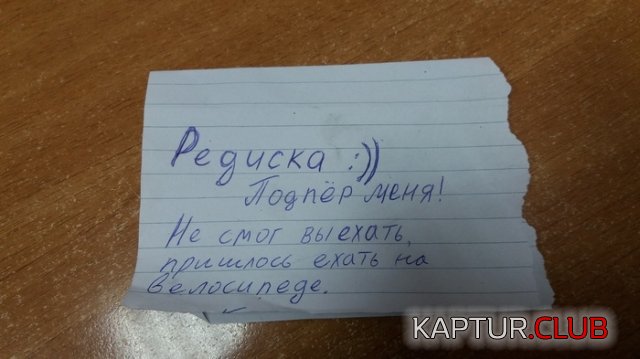 Редиска :))
Подпёр меня!
Не смог выехать,
пришлось ехать на
велосипеде.
KAPTUR.CLUB